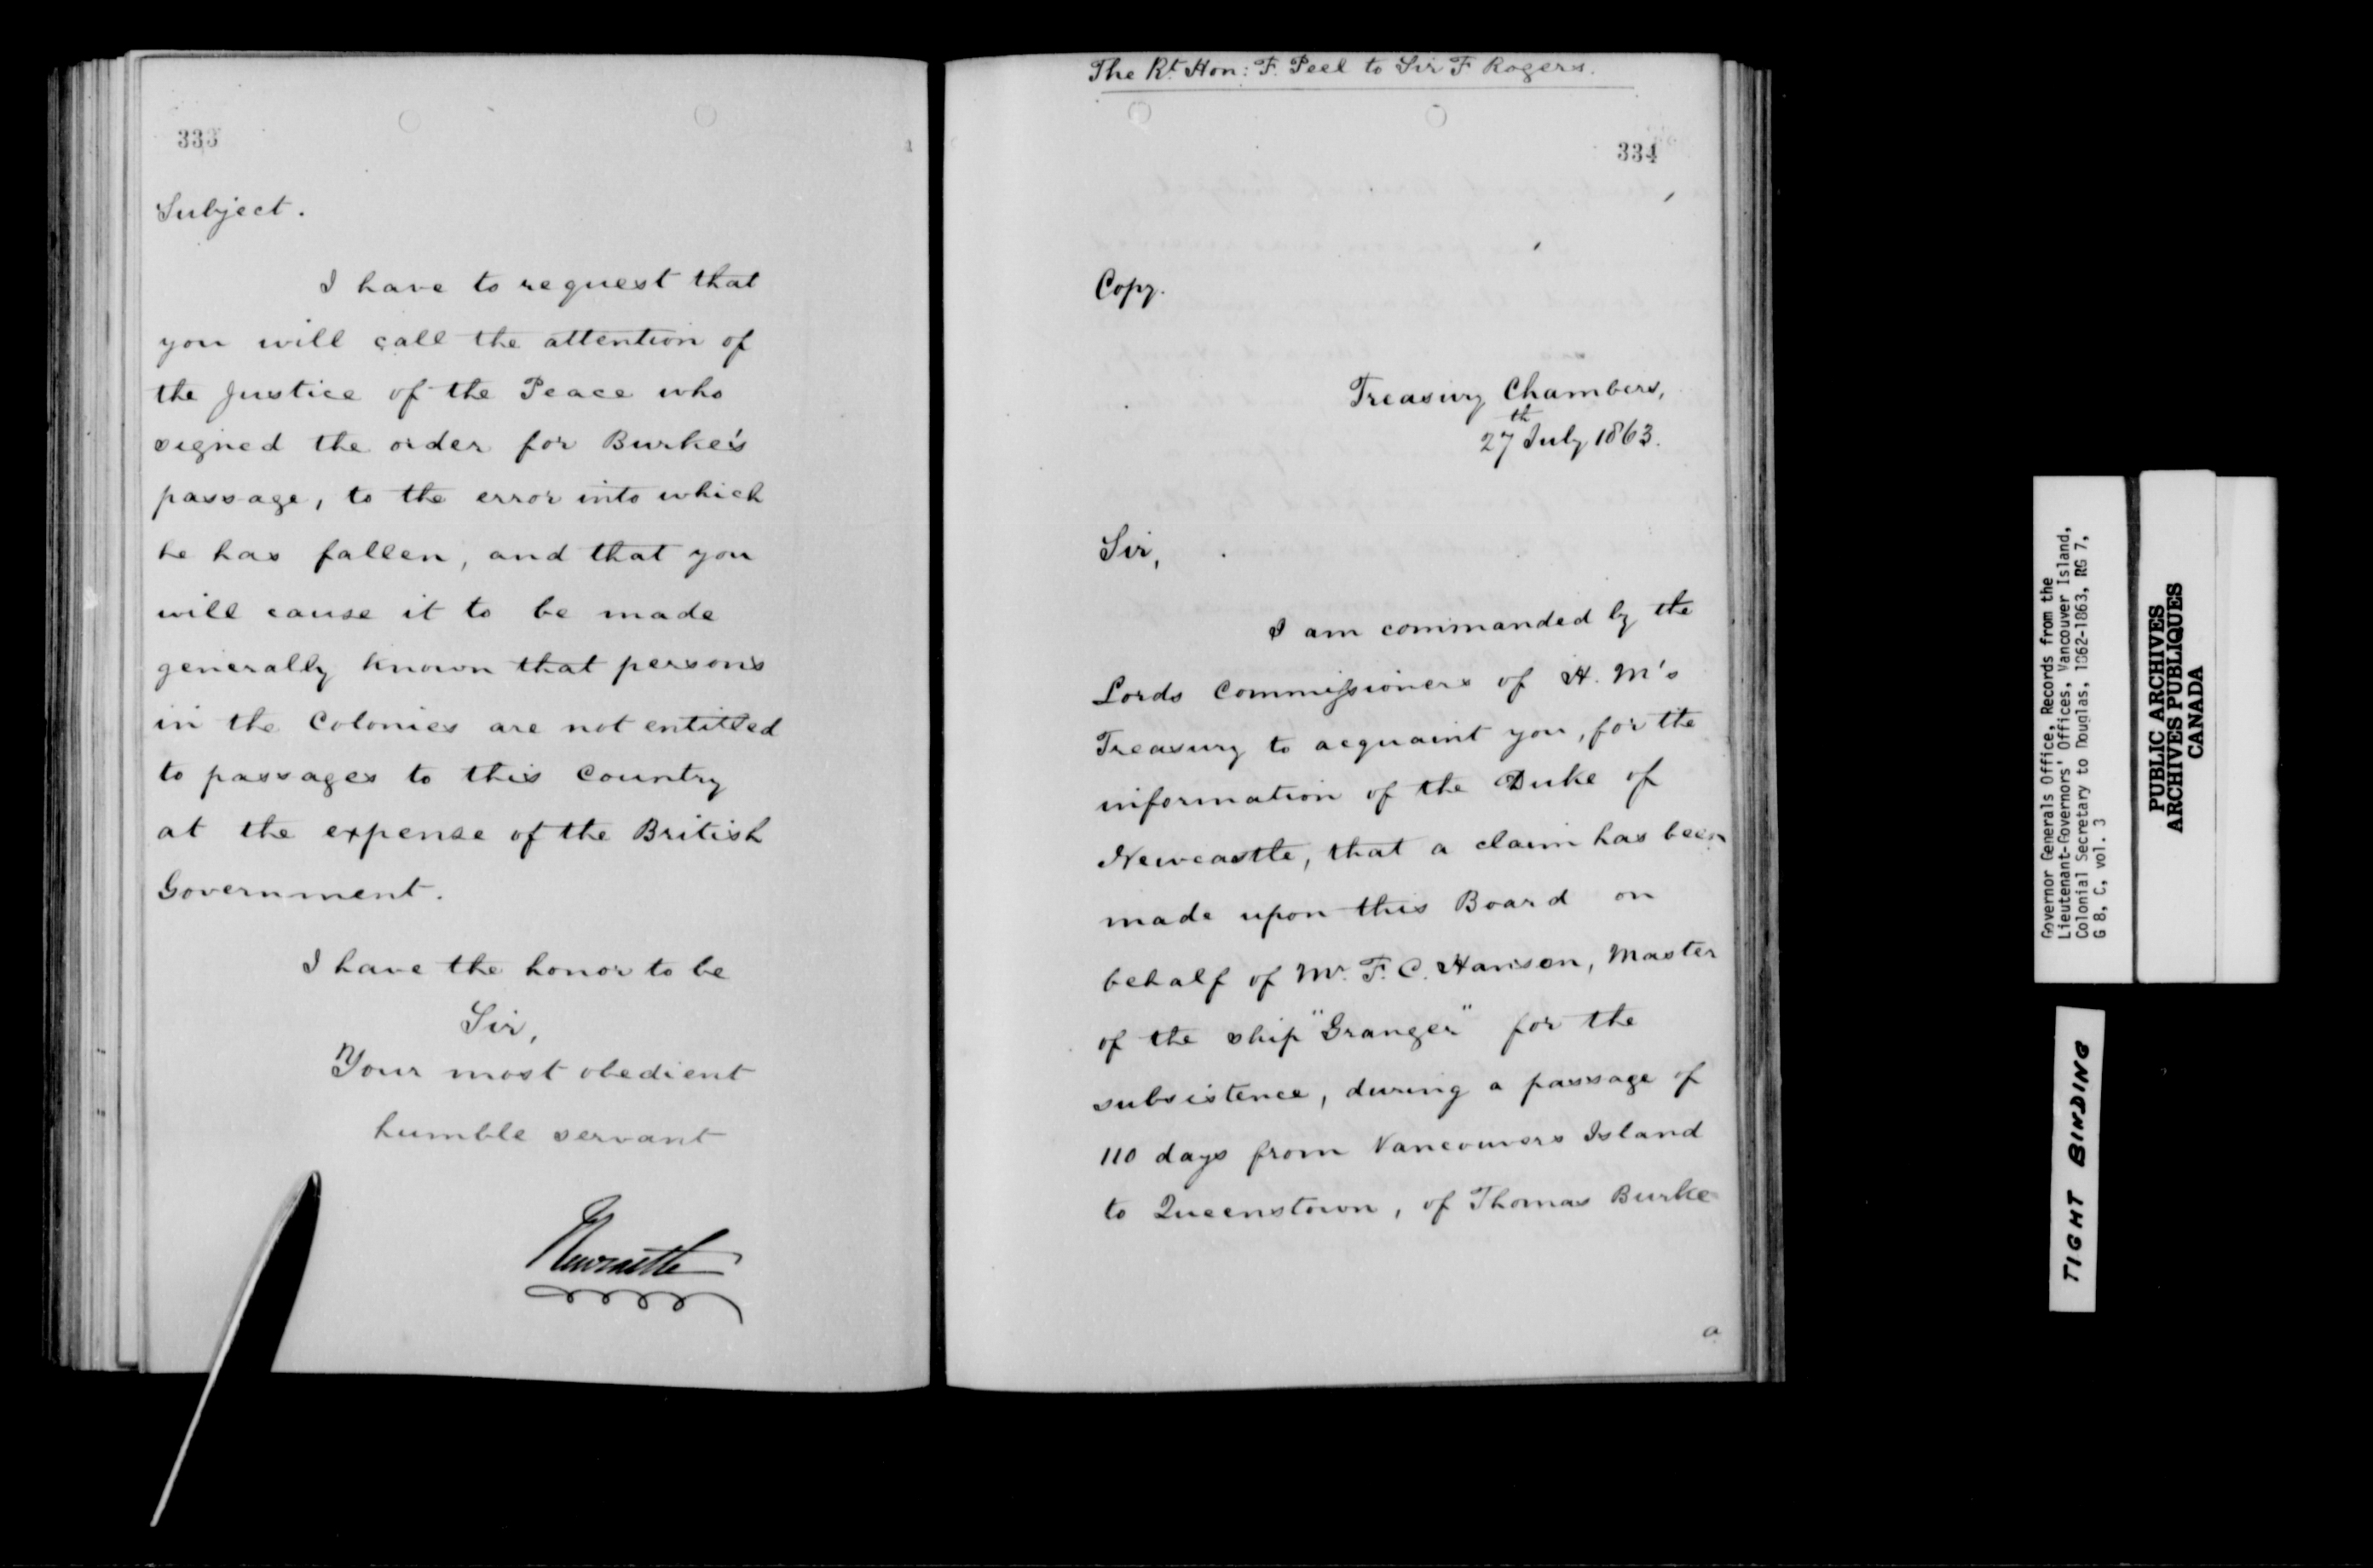 333
Subject.
I have to request that
you will call the attention of
the Justice of the Peace who
signed the order for Burke's
passage, to the error into which
he has fallen, and that you
will cause it to be made
generally known that persons
in the Colonies are not entitled
to passages to this Country
at the expense of the British
Government.
I have the honor to be
Sir,
Your most obedient
humble servant
Newcastle
The Rt. Hon: F. Peel to Sir F Rogers.
334
Copy.
Treasury Chambers,
27th July 1863.
Sir,
I am commanded by the
Lords Commissioners of H. M's
Treasury to acquaint you, for the
information of the Duke of
Newcastle, that a claim has been
made upon this Board on
behalf of Mr. F. C. Hanson, Master
of the ship "Granger" for the
subsistence, during a passage of
110 days from Vancouvers Island
to Queenstown, of Thomas Burke
a
Governor Generals Office, Records from the
Lieutenant-Governors' Offices, Vancouver Island,
Colonial Secretary to Douglas, 1862-1863, RG 7,
G 8, C, vol. 3
PUBLIC ARCHIVES
ARCHIVES PUBLIQUES
CANADA
TIGHT BINDING